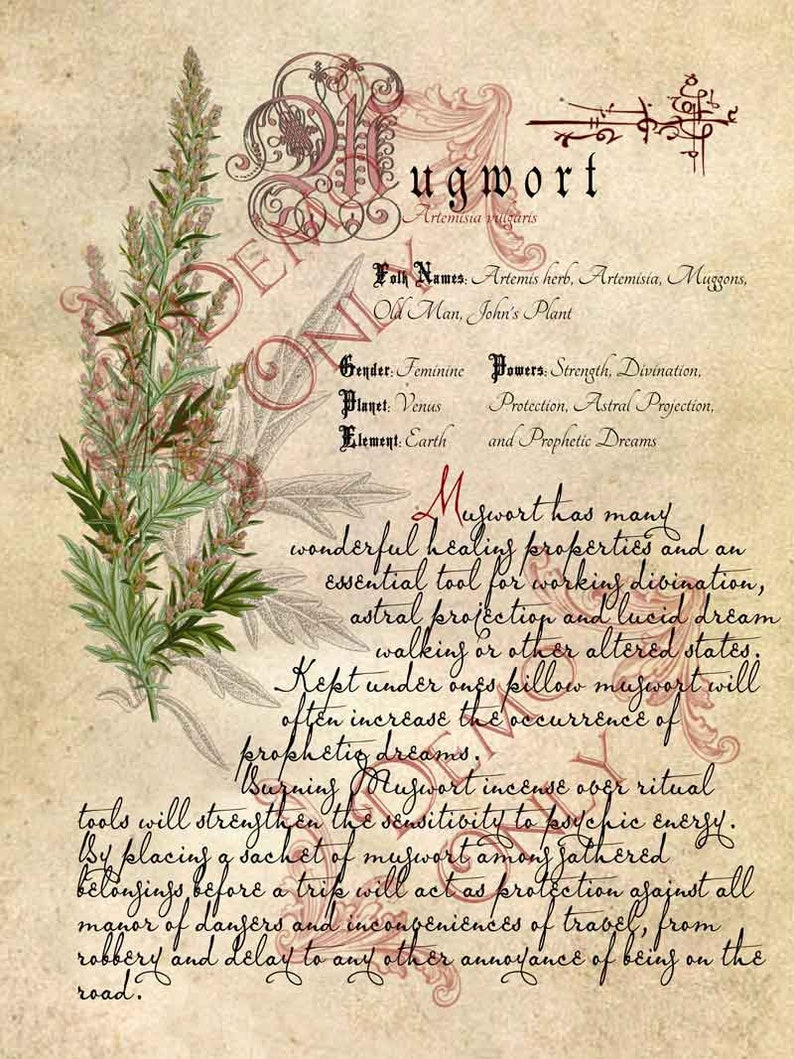 Mugwort
Artemisia vulgaris
Folk Names: Artemis herb, Artemisia, Muggons,
Old Man, John's Plant
Gender: Feminine
Planet: Venus
Element: Earth
Powers: Strength, Divination,
Protection, Astral Projection,
and Prophetic Dreams
Mugwort has many
wonderful healing properties and an
essential tool for working divination,
astral projection and lucid dream
walking or other altered states.
Kept under ones pillow mugwort will
often increase the occurrence of
prophetic dreams.
Burning Mugwort incense over ritual
tools will strengthen the sensitivity to psychic energy.
By placing a sachet of mugwort among gathered
belongings before a trip will act as protection against all
manor of dangers and inconveniences of travel, from
robbery and delay to any other annoyance of being on the
road.
Demo
Only
Demo
Only